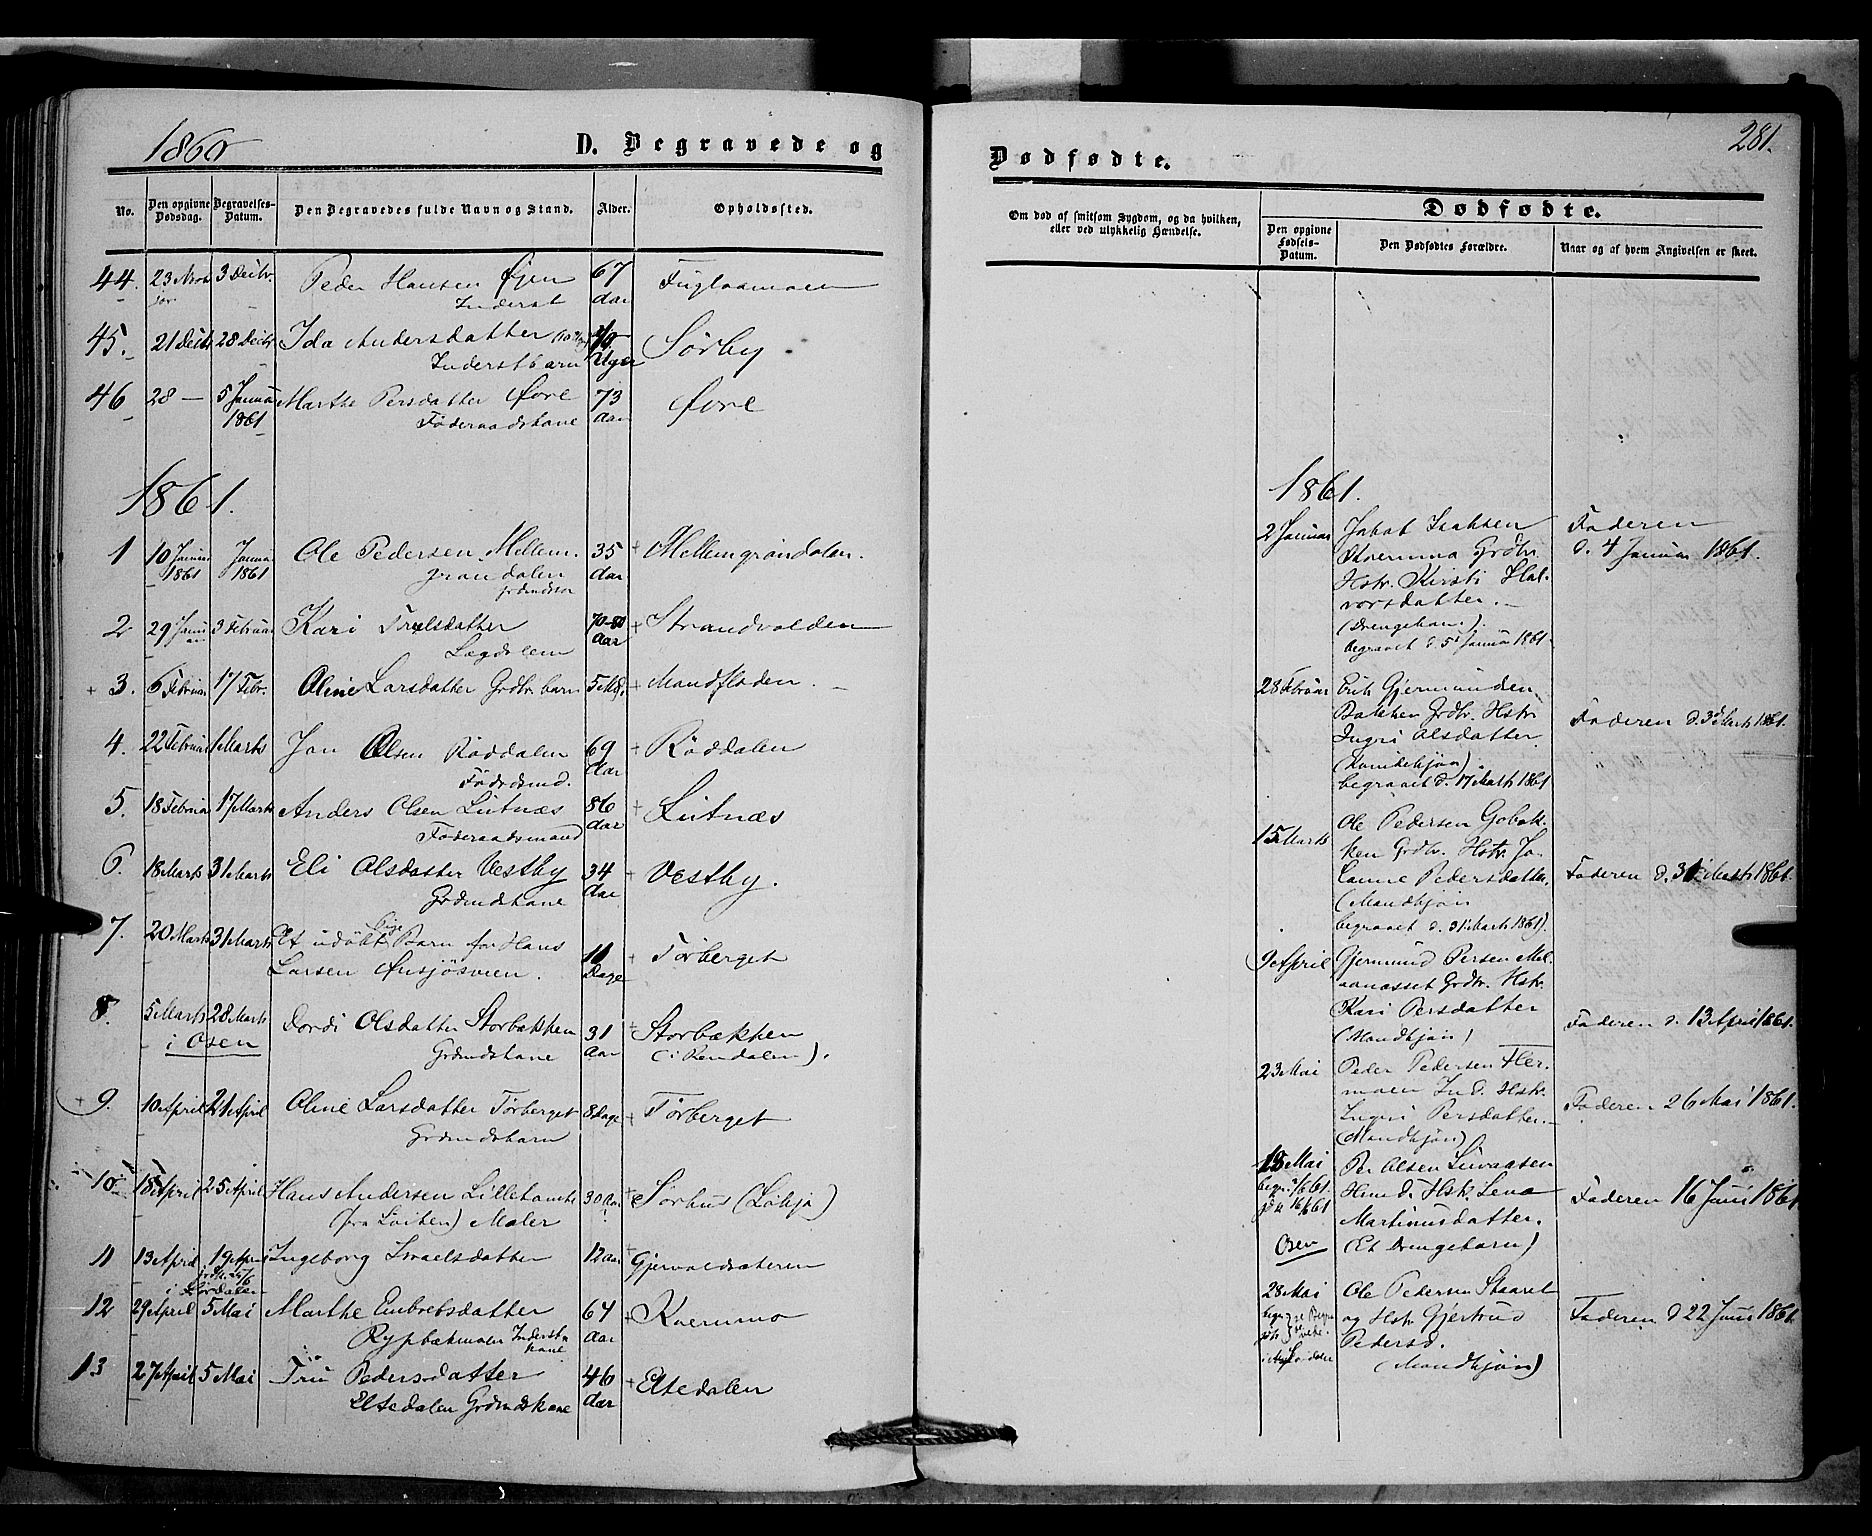 1860
D. Begravede og
No.
Den opgivne Dødsdag.
Begravelses-Datum.
Den Begravedes fulde Navn og Stand.
Alder.
Opholdssted.
44. 23 3 Decbr. Peder Hansen Øyen 67 Fuglaamoen
Inderst Aar
45. 21 Decbr 28 Decbr Ida Andersdatter 10 Sørby
Inderstbarn Uger
46 28 — 5 Januar Marthe Persdatter Øvre 73 Øvre
1861 Føderaadskone Aar
1861.
1 10 Januar Januar Ole Pedersen Mellem- 35 Mellemgrøndalen.
1861 1861 grøndalen Aar
2 29 Januar 3 Februar Kari Truls­datter 70-80 Strandvolden
Lægdslem Aar
3. 6 Februar 17 Febr. Oline Larsdatter Grdbr. barn 5 Md. Mandfloden.
4. 22 Februar 1 Marts Jon Olsen Röddalen 69 Röddalen
Födrdsmd. Aar
5. 18 Februar 17 Marts Anders Olsen Lutnæs 86 Lutnæs
Føderaadsmand Aar
6. 18 Marts 31 Marts Eli Olsdatter Vestby 34 Vestby.
Grdmdskone Aar
7. 20 Marts 31 Marts Et udöbt Pige Barn for Hans
Larsen 10 Dage Törberget
8. 5 Marts 28 Marts Dordi Olsdatter Storbækken 31 Storbækken
i Osen Grdmdskone Aar (i Rendalen).
9. 10 April 21 April Oline Larsdatter Törberget 8 Dage Törberget
Grdmdsbarn
10 18 April 25 April Hans Andersen Lillehamr 30 Aar Sörhus
(fra Löiten) Maler
11 13 April 19 April Ingeborg Israelsdatter 12 Aar Gjervoldsæteren
12 29 April 5 Mai Marthe Embretsdatter 64 Kvernmo
Rypbækmoen Inderst- Aar
kone
13 27 April 5 Mai Tru Pedersdatter 46 Eltedalen
Eltedalen Grdmdskone Aar
281.
Dødfødte.
Om død af smitsom Sygdom, og da hvilken,
eller ved ulykkelig Hændelse.
Dødfødte.
Den opgivne Fødsels-Datum.
Den Dødfødtes Forældre.
Naar og af hvem Angivelsen er skeet.
1861.
2 Januar Jakob Isaksen Faderen
Grdbr. d. 4 Januar 1861.
Hstr. Kirsti Hal-
vorsdatter.
(Drengebarn).
begravet d 5 Januar 1861.
28 Februar Erik Gjermundsen
Bakken Grdbr. Hstr. Faderen d. 3 Marts 1861.
Ingri Olsdatter
(Kvindekjön).
begravet d. 17 Marts 1861
15 Marts Ole Pedersen Gobak-
ken Grdbr. Hstr. Jo-
hanne Pedersdatter. Faderen d. 31 Marts 1861.
(Mandkjön
begravet d. 31 Marts 1861).
9 April Gjermund Persen Mel-
aanæsset Grdbr. Hstr.
Kari Persdatter Faderen d. 13 April 1861.
(Mandkjön)
23 Mai Peder Pedersen Fler-
moen Ind. Hstr. Faderen 26 Mai 1861.
Ingri Persdatter.
(Mandkjön)
18 Mai Per Olsen
Hstr. Lena Faderen 16 Juni 1861
Martinusdatter.
Osen (Et Drengebarn)
28 Mai Ole Pedersen
og Hstr. Gjertrud Faderen d 22 Juni 1861.
Pedersd.
(Mandkjön)